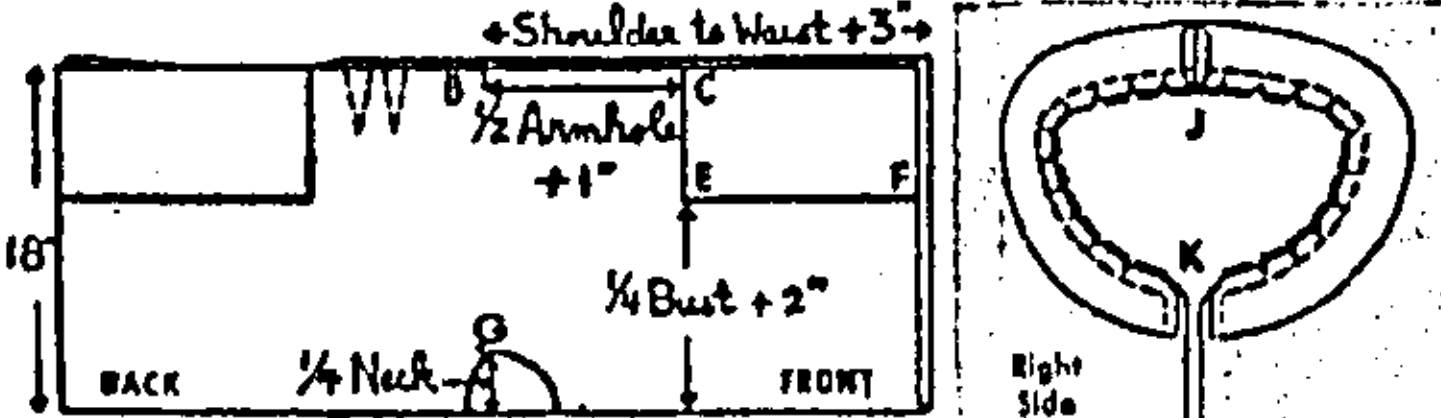 Shoulder to Waist +3"
C
½ Armhole
+1"
E
F
18
¼ Bust + 2"
G
¼ Neck
BACK
FRONT
J
K
Right
Side